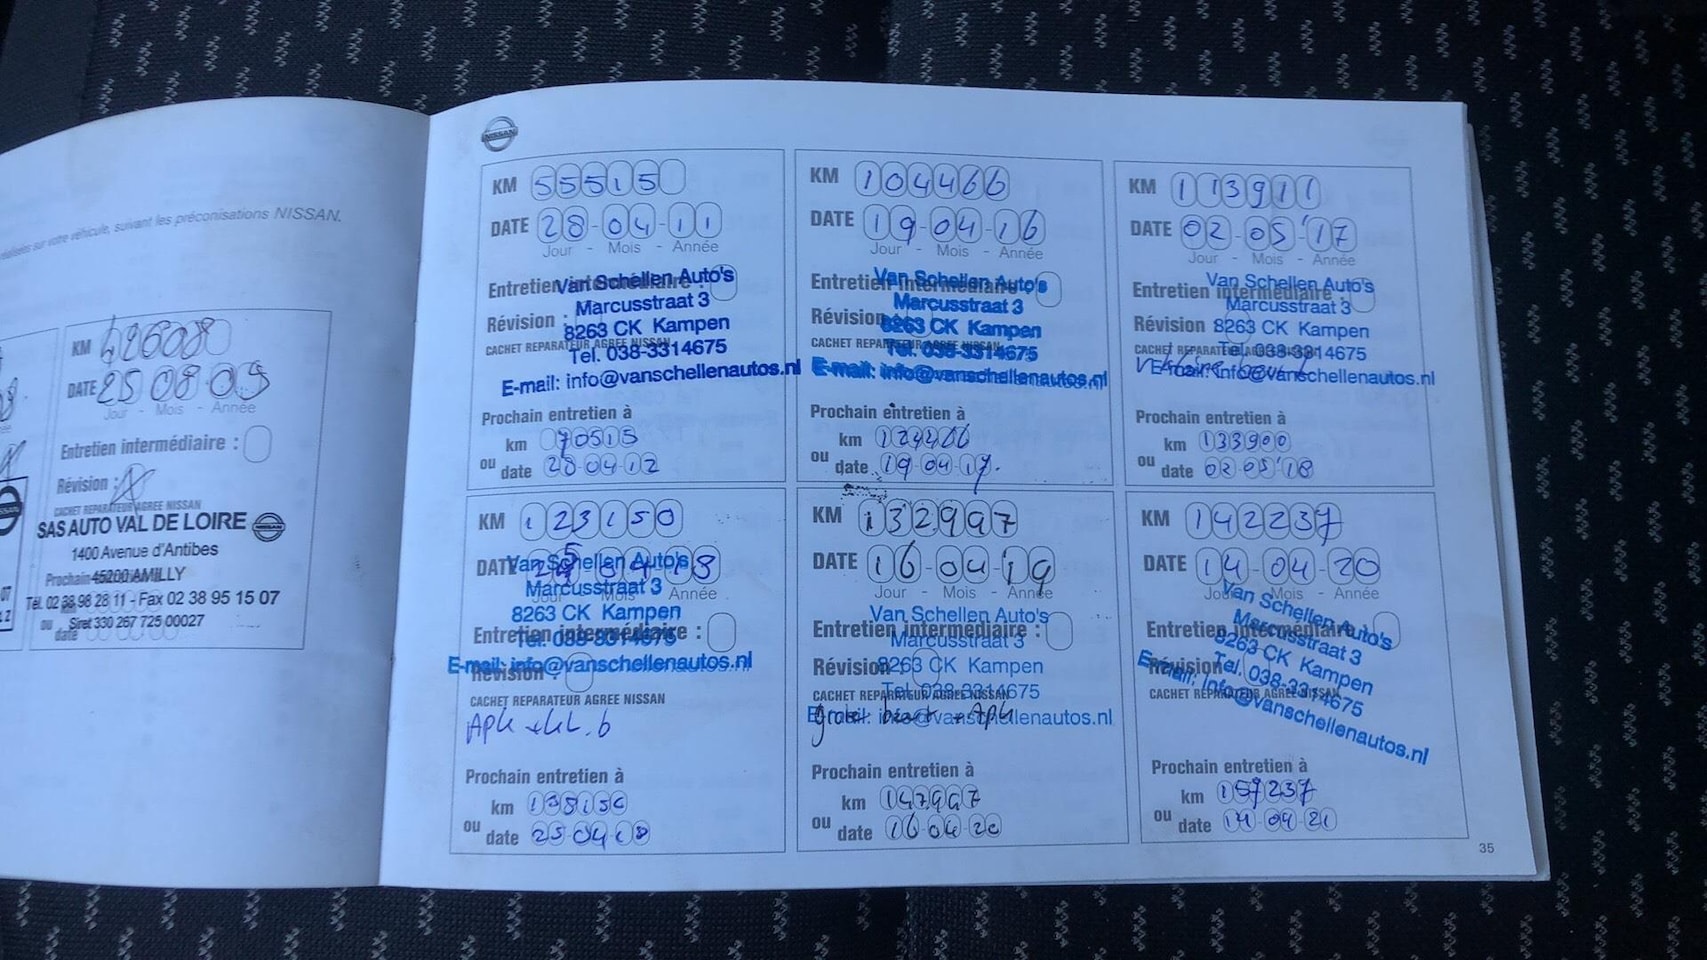 réalisées sur votre véhicule, suivant les préconisations NISSAN.
KM 42608
DATE 25 08 09
Jour - Mois - Année
Entretien intermédiaire :
Révision : X
CACHET REPARATEUR AGREE NISSAN
SAS AUTO VAL DE LOIRE
1400 Avenue d'Antibes
45200 AMILLY
Tél. 02 38 98 28 11 - Fax 02 38 95 15 07
Siret 330 267 725 00027
Prochain
ou date
NISSAN
KM 55515
DATE 28-04-11
Jour - Mois - Année
Entretien intermédiaire :
Révision :
CACHET REPARATEUR AGREE NISSAN
Van Schellen Auto's
Marcusstraat 3
8263 CK Kampen
Tel. 038-3314675
E-mail: info@vanschellenautos.nl
Prochain entretien à
km 70515
ou date 28 04 12
KM 104466
DATE 19-04-16
Jour - Mois - Année
Entretien intermédiaire :
Révision
CACHET REPARATEUR AGREE NISSAN
Van Schellen Auto's
Marcusstraat 3
8263 CK Kampen
Tel. 038-3314675
E-mail: info@vanschellenautos.nl
Prochain entretien à
km 124466
ou date 19 04 17.
KM 113911
DATE 02-05-17
Jour - Mois - Année
Entretien intermédiaire :
Révision
CACHET REPARATEUR AGREE NISSAN
Van Schellen Auto's
Marcusstraat 3
8263 CK Kampen
Tel. 038-3314675
E-mail: info@vanschellenautos.nl
Prochain entretien à
km 133900
ou date 02 05 18
KM 123150
DATE 25 04 18
Jour Mois - Année
Van Schellen Auto's
Marcusstraat 3
8263 CK Kampen
Tel. 038-3314675
E-mail: info@vanschellenautos.nl
Entretien intermédiaire :
Révision
CACHET REPARATEUR AGREE NISSAN
Apk + kl. b
Prochain entretien à
km 138150
ou date 25 04 18
KM 132997
DATE 16-04-19
Jour - Mois - Année
Van Schellen Auto's
Entretien intermédiaire :
Marcusstraat 3
Révision
8263 CK Kampen
CACHET REPARATEUR AGREE NISSAN
Tel. 038-3314675
E-mail: info@vanschellenautos.nl
groot beurt + Apk
Prochain entretien à
km 147997
ou date 16 04 20
KM 142237
DATE 14-04-20
Jour - Mois - Année
Entretien intermédiaire
Révision
CACHET REPARATEUR AGREE NISSAN
Van Schellen Auto's
Marcusstraat 3
8263 CK Kampen
Tel. 038-3314675
E-mail: info@vanschellenautos.nl
Prochain entretien à
km 157237
ou date 14 04 21
35